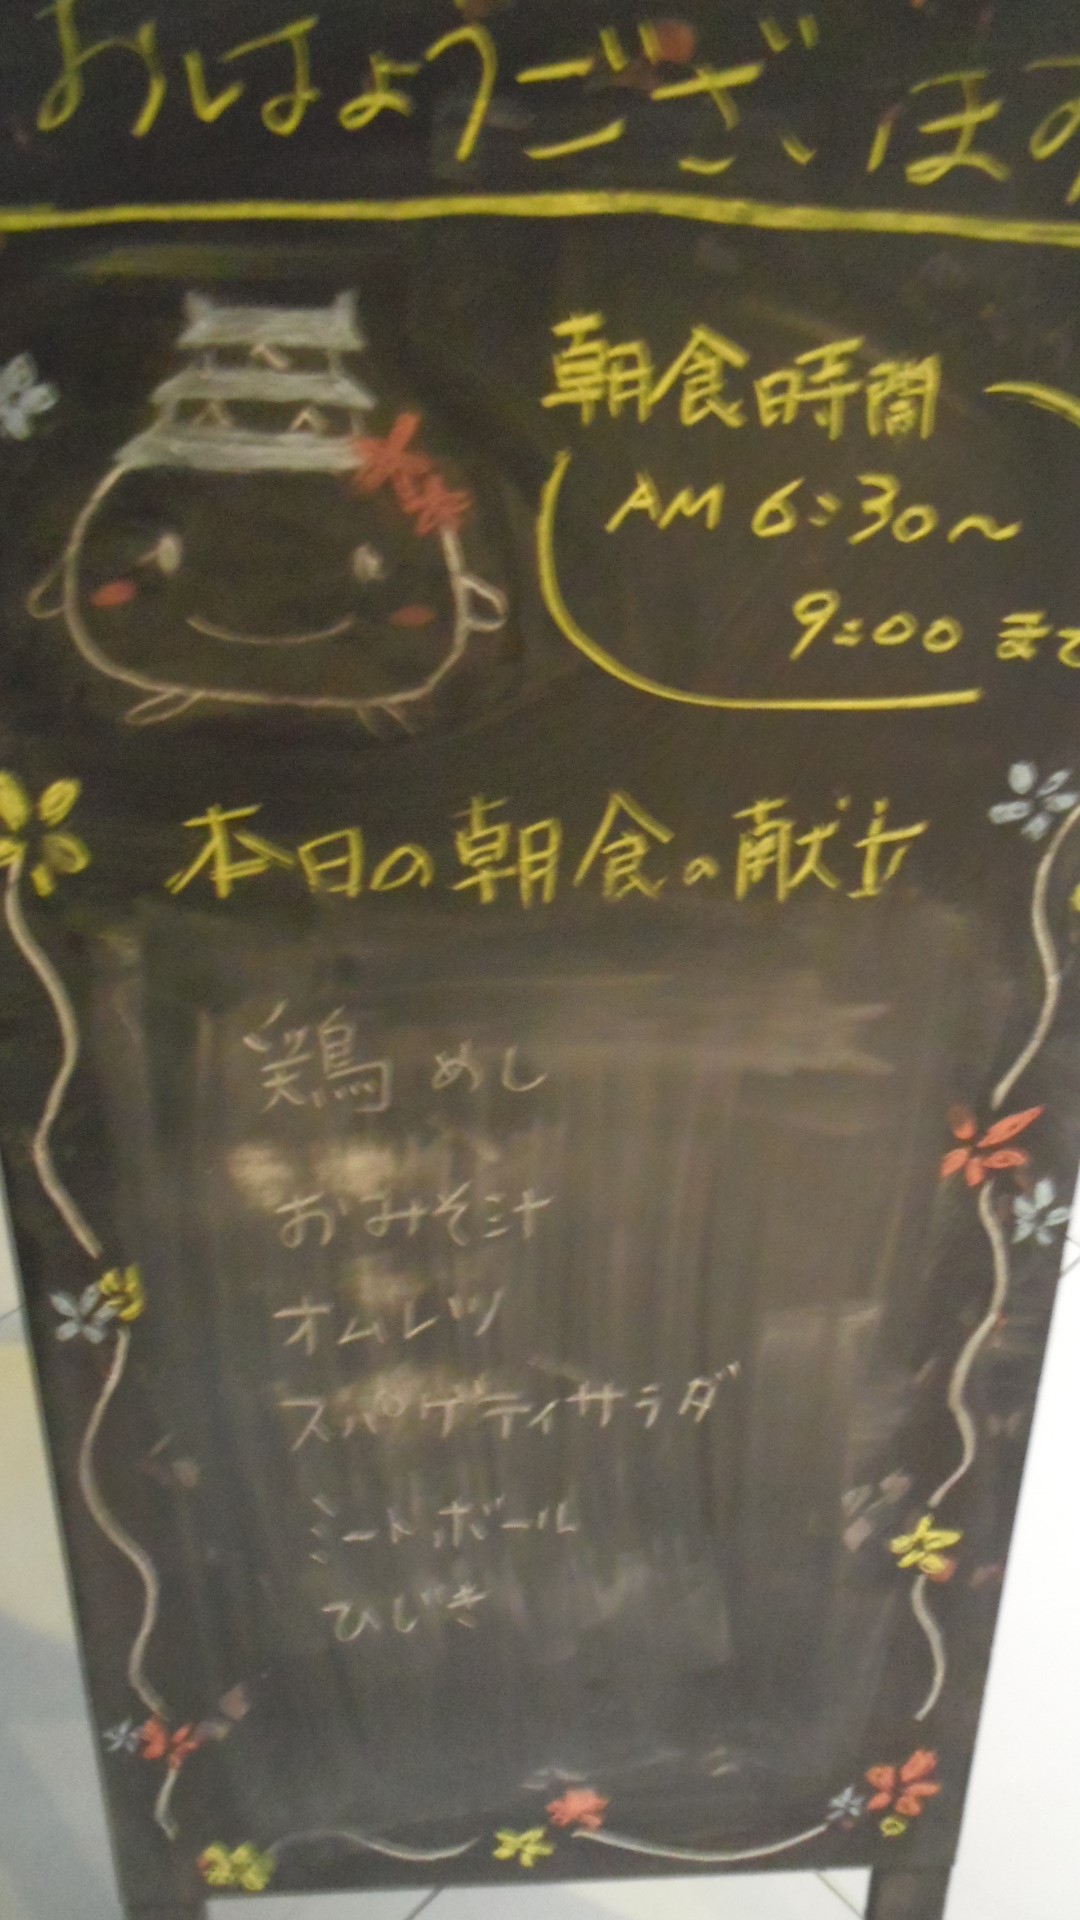 おはようございます
朝食時間
AM 6:30〜
9:00 まで
本日の朝食の献立
鶏めし
おみそ汁
オムレツ
スパゲティサラダ
ミートボール
ひじき